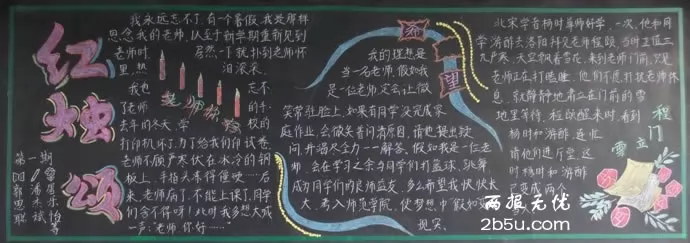 红烛颂
我永远忘不了,有个暑假,我是那样
思念我的老师,以至于新学期重新见到
老师时,居然一下就扑到老师怀
里,热泪滚滚。
老师,你好
我也忘不
了老师的手,
去年的冬天,学校的
打印机坏了,为了给我们印试卷,
老师不顾严寒伏在冰冷的钢
板上,手指头冻得僵硬……后
来,老师病了,不能上课了,同学
们舍不得呀!此时我多想大喊
一声:“老师,你好……”
第一期
希望
我的理想是
当一名老师,假如我
是一位老师,定会让微
笑常驻脸上,如果有同学没完成家
庭作业,会微笑着问清原因,请他提出疑
问,并竭尽全力一一解答,假如我是一位老
师,会在学习之余与同学们打篮球、跳舞,
成为同学们的良师益友,多么希望我快快长
大,考入师范学院,使梦想中“假如”变
现实。
北宋学者杨时尊师好学,一次,他和同
学游酢去洛阳拜见老师程颐,当时正值三
九严寒,天空飘着雪花,来到老师门前,只见
老师正在打瞌睡,他们不忍打扰老师休
息,就静静地肃立在门前的雪
地里等待,程颐醒来时,看到
杨时和游酢,连忙
请他们进厅堂,这
时杨时和游酢
已变成两个
程门立雪
两报无忧
2b5u.com